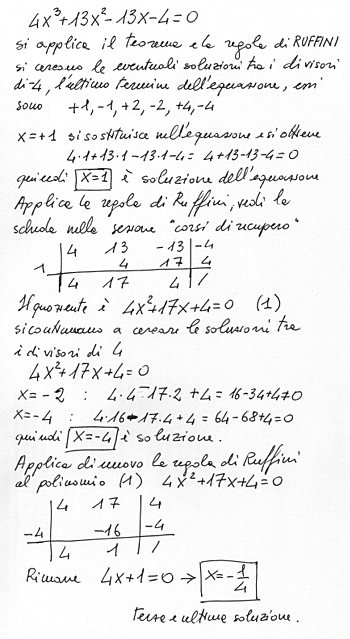 4x³+13x²-13x-4=0
si applica il teorema e la regola di RUFFINI
si cercano le eventuali soluzioni tra i divisori
di -4, l'ultimo termine dell'equazione, essi
sono +1,-1,+2,-2,+4,-4
x=+1 si sostituisce nell'equazione e si ottiene
4·1+13·1-13·1-4= 4+13-13-4=0
quindi x=1 è soluzione dell'equazione
Applica la regola di Ruffini, vedi la
scheda nella sezione "corsi di recupero"
4 13 -13 -4
1 4 17 4
4 17 4 /
Il quoziente è 4x²+17x+4=0 (1)
si continuano a cercare le soluzioni tra
i divisori di 4
4x²+17x+4=0
x=-2 : 4·4-17·2+4=16-34+4≠0
x=-4 : 4·16-17·4+4=64-68+4=0
quindi x=-4 è soluzione.
Applica di nuovo la regola di Ruffini
al polinomio (1) 4x²+17x+4=0
4 17 4
-4 -16 -4
4 1 /
Rimane 4x+1=0 → x=-1/4
terza e ultima soluzione.